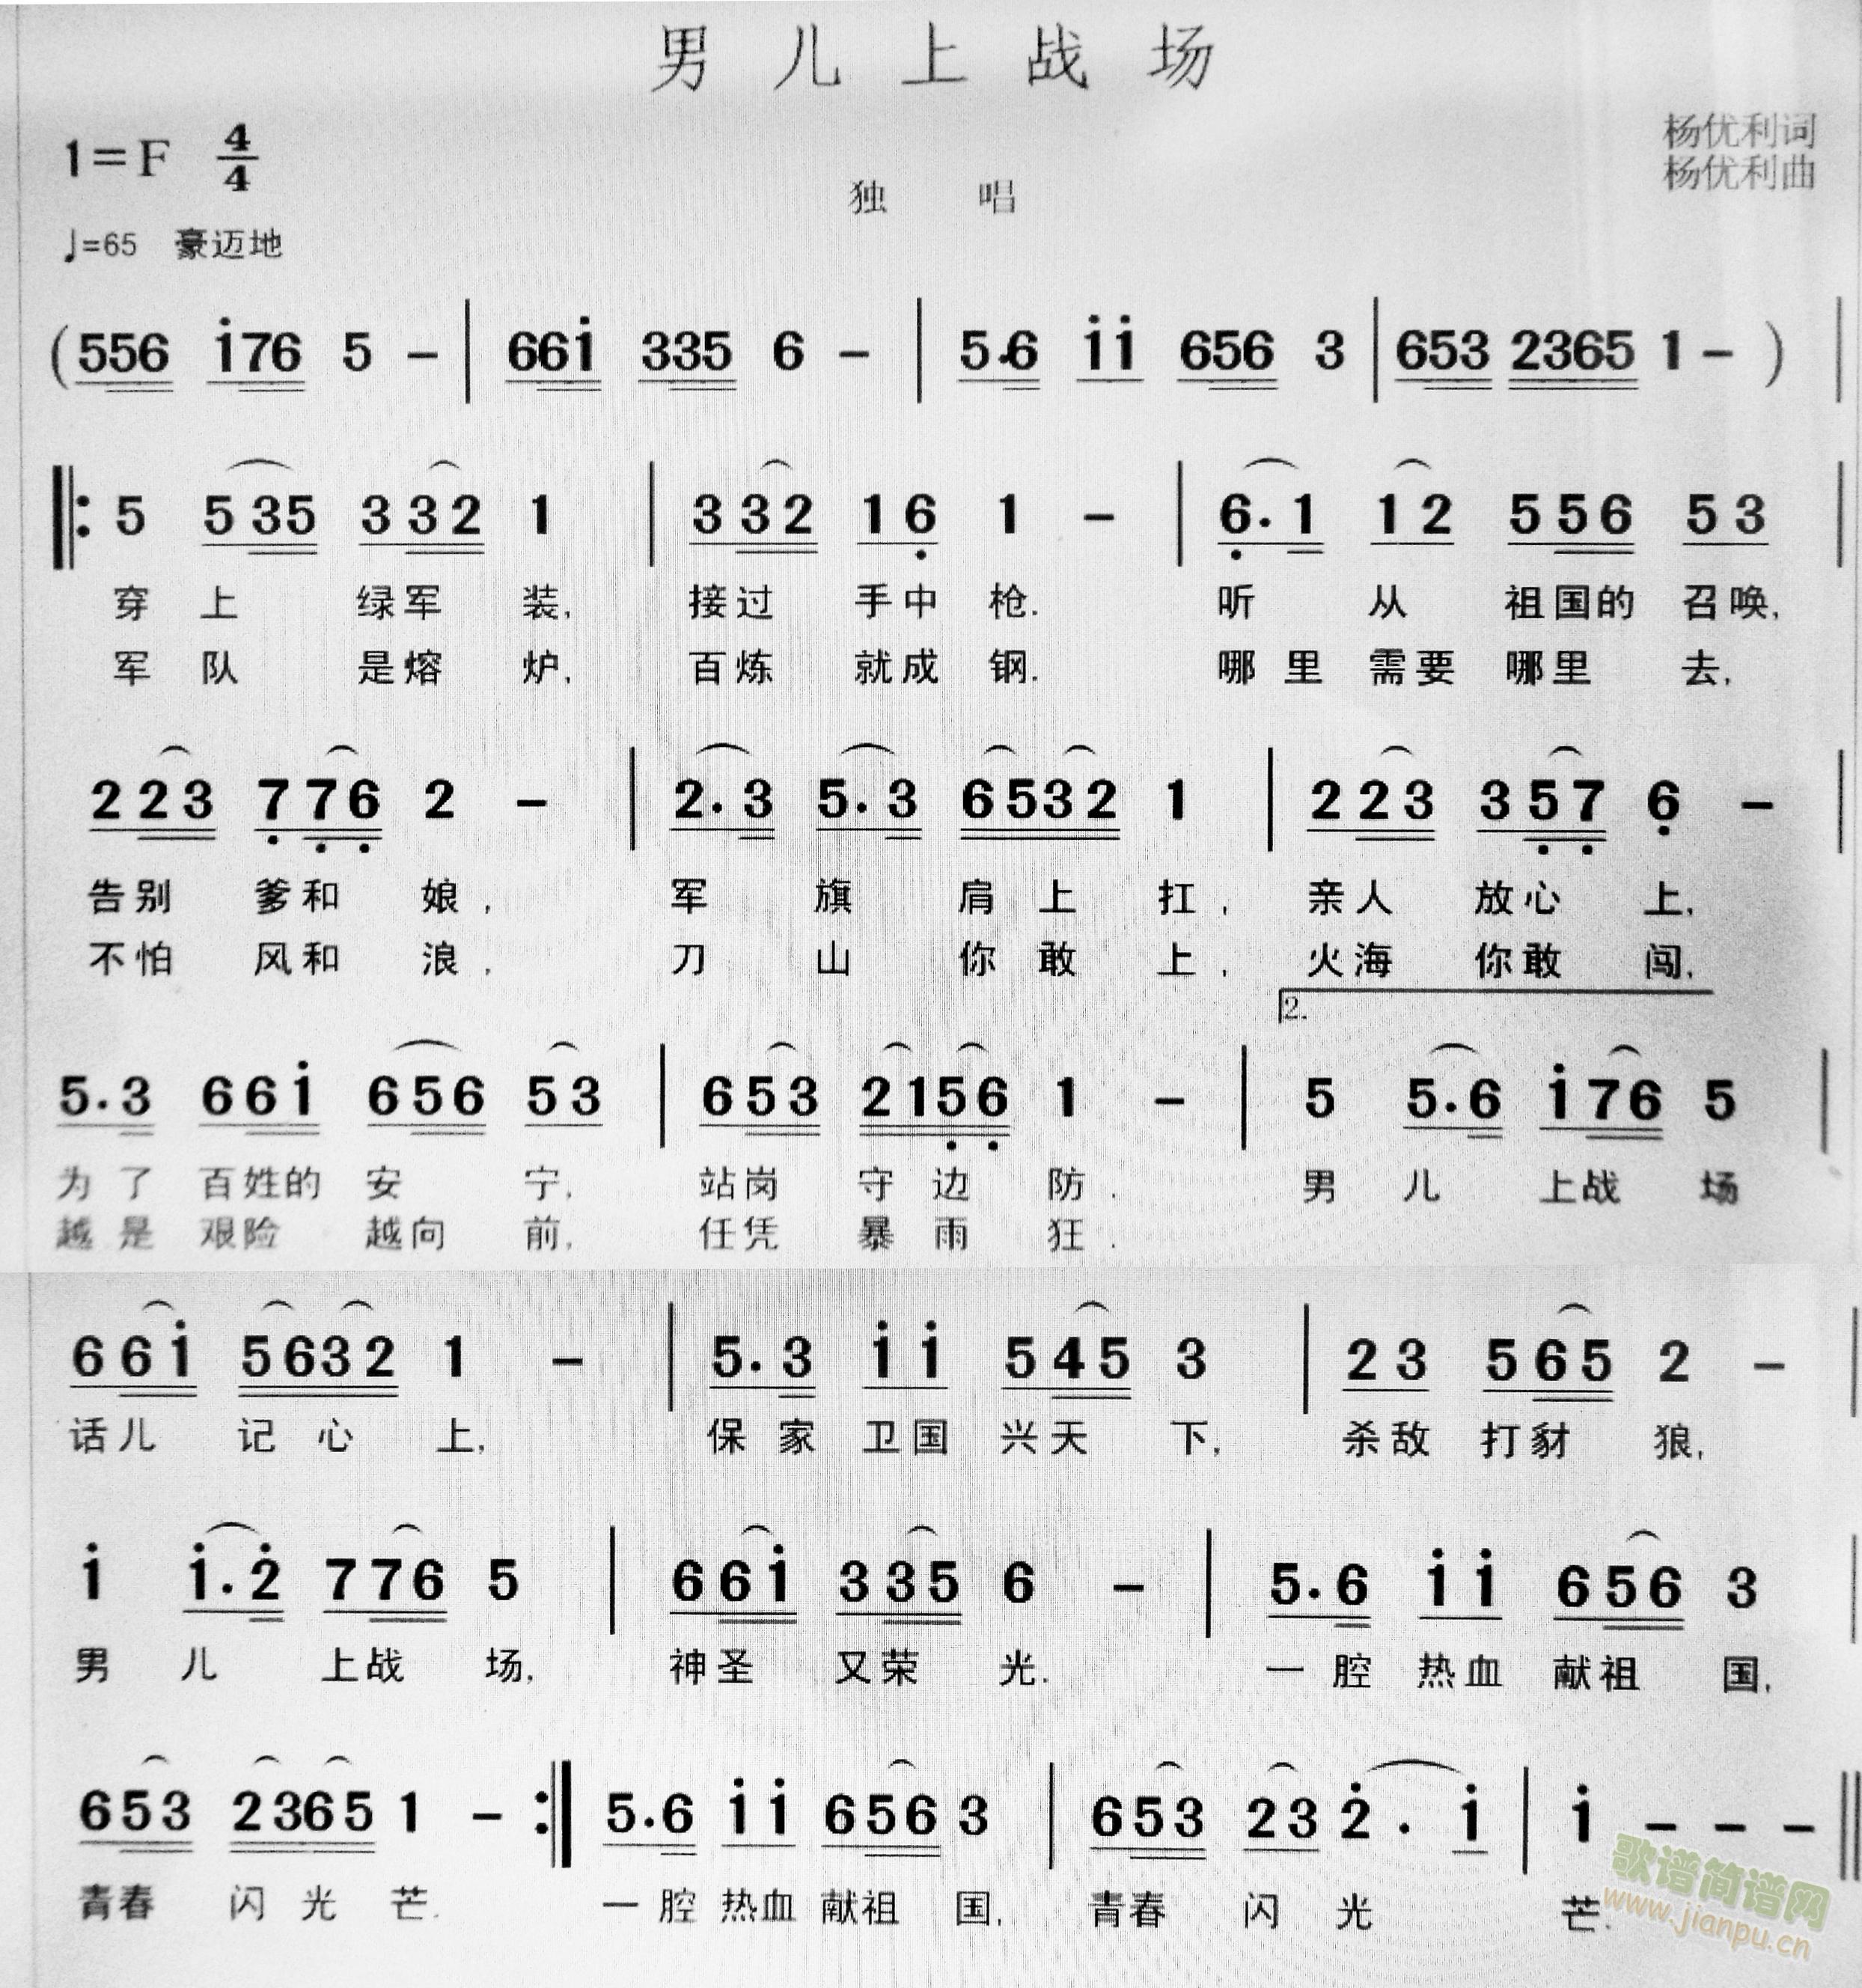 男儿上战场
1=F 4/4
杨优利词
杨优利曲
独 唱
♩=65 豪迈地
(556 i76 5 - | 66i 335 6 - | 5.6 ii 656 3 | 653 2365 1 - ) |
‖: 5 535 332 1 | 332 16 1 - | 6. 1 12 556 53 |
穿 上 绿军 装, 接过 手中 枪. 听 从 祖国的 召唤,
军 队 是熔 炉, 百炼 就成 钢. 哪 里 需要 哪里 去,
223 776 2 - | 2. 3 5. 3 6532 1 | 223 357 6 - |
告别 爹和 娘, 军 旗 肩 上 扛, 亲人 放心 上,
不怕 风和 浪, 刀 山 你 敢 上, 火海 你敢 闯,
2.
5. 3 66i 656 53 | 653 2156 1 - | 5 5. 6 i76 5 |
为 了 百姓的 安 宁, 站岗 守 边 防. 男 儿 上战 场
越 是 艰险 越向 前, 任凭 暴 雨 狂.
66i 5632 1 - | 5. 3 ii 545 3 | 23 565 2 - |
话儿 记 心 上, 保 家 卫国 兴天 下, 杀敌 打豺 狼,
i i. 2 776 5 | 66i 335 6 - | 5. 6 ii 656 3 |
男 儿 上战 场, 神圣 又荣 光. 一 腔 热血 献祖 国,
653 2365 1 - :‖ 5. 6 ii 656 3 | 653 23 2 . i | i - - - ‖
青春 闪 光 芒. 一 腔 热血 献祖 国, 青春 闪 光 芒.
歌谱简谱网
www.jianpu.cn